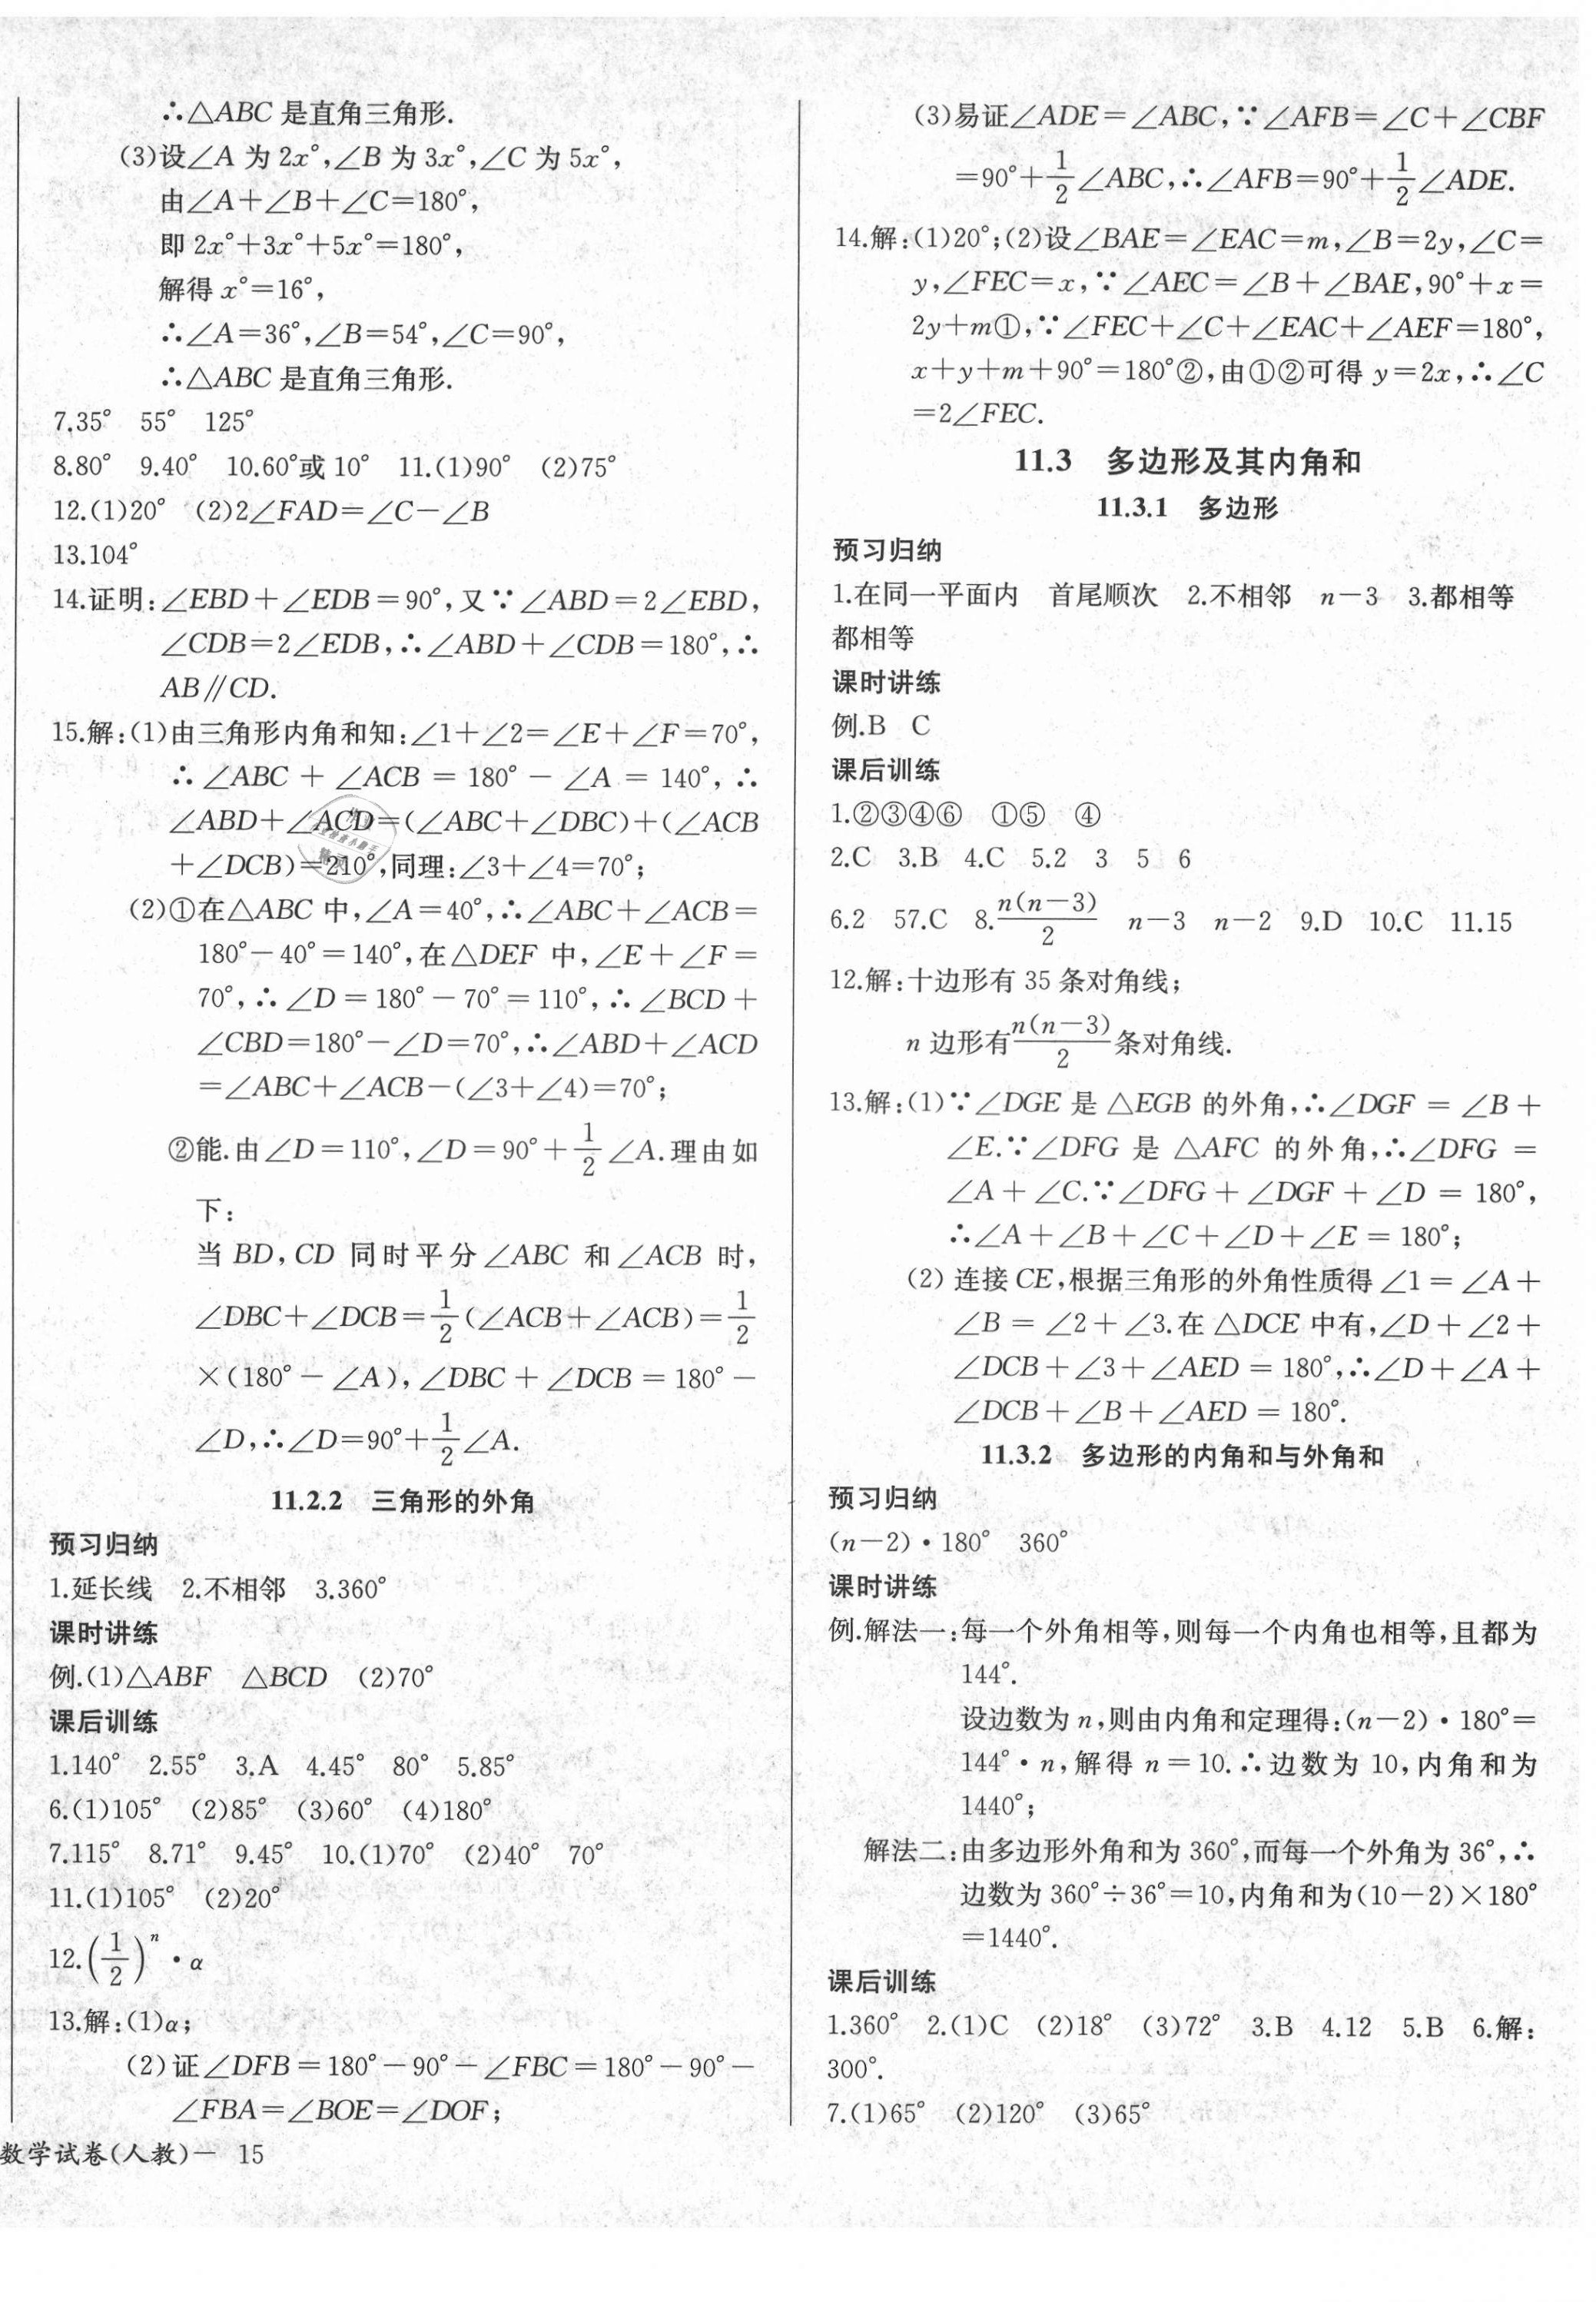 ∴△ABC 是直角三角形.
(3)设∠A 为 2x°,∠B 为 3x°,∠C 为 5x°,
由∠A+∠B+∠C=180°,
即 2x°+3x°+5x°=180°,
解得 x°=16°,
∴∠A=36°,∠B=54°,∠C=90°,
∴△ABC 是直角三角形.
7.35° 55° 125°
8.80° 9.40° 10.60°或 10° 11.(1)90° (2)75°
12.(1)20° (2)2∠FAD=∠C-∠B
13.104°
14.证明:∠EBD+∠EDB=90°,又∵∠ABD=2∠EBD,
∠CDB=2∠EDB,∴∠ABD+∠CDB=180°,∴
AB∥CD.
15.解:(1)由三角形内角和知:∠1+∠2=∠E+∠F=70°,
∴∠ABC+∠ACB=180°-∠A=140°,∴
∠ABD+∠ACD=(∠ABC+∠DBC)+(∠ACB
+∠DCB)=210°,同理:∠3+∠4=70°;
(2)①在△ABC 中,∠A=40°,∴∠ABC+∠ACB=
180°-40°=140°,在△DEF 中,∠E+∠F=
70°,∴∠D=180°-70°=110°,∴∠BCD+
∠CBD=180°-∠D=70°,∴∠ABD+∠ACD
=∠ABC+∠ACB-(∠3+∠4)=70°;
②能.由∠D=110°,∠D=90°+1/2∠A.理由如
下:
当 BD,CD 同时平分∠ABC 和∠ACB 时,
∠DBC+∠DCB=1/2(∠ACB+∠ACB)=1/2
×(180°-∠A),∠DBC+∠DCB=180°-
∠D,∴∠D=90°+1/2∠A.
11.2.2 三角形的外角
预习归纳
1.延长线 2.不相邻 3.360°
课时讲练
例.(1)△ABF △BCD (2)70°
课后训练
1.140° 2.55° 3.A 4.45° 80° 5.85°
6.(1)105° (2)85° (3)60° (4)180°
7.115° 8.71° 9.45° 10.(1)70° (2)40° 70°
11.(1)105° (2)20°
12.(1/2)ⁿ·α
13.解:(1)α;
(2)证∠DFB=180°-90°-∠FBC=180°-90°-
∠FBA=∠BOE=∠DOF;
数学试卷(人教)— 15
(3)易证∠ADE=∠ABC,∵∠AFB=∠C+∠CBF
=90°+1/2∠ABC,∴∠AFB=90°+1/2∠ADE.
14.解:(1)20°;(2)设∠BAE=∠EAC=m,∠B=2y,∠C=
y,∠FEC=x,∵∠AEC=∠B+∠BAE,90°+x=
2y+m①,∵∠FEC+∠C+∠EAC+∠AEF=180°,
x+y+m+90°=180°②,由①②可得 y=2x,∴∠C
=2∠FEC.
11.3 多边形及其内角和
11.3.1 多边形
预习归纳
1.在同一平面内 首尾顺次 2.不相邻 n-3 3.都相等
都相等
课时讲练
例.B C
课后训练
1.②③④⑥ ①⑤ ④
2.C 3.B 4.C 5.2 3 5 6
6.2 57.C 8.n(n-3)/2 n-3 n-2 9.D 10.C 11.15
12.解:十边形有 35 条对角线;
n 边形有n(n-3)/2条对角线.
13.解:(1)∵∠DGE 是△EGB 的外角,∴∠DGF=∠B+
∠E.∵∠DFG 是 △AFC 的外角,∴∠DFG=
∠A+∠C.∵∠DFG+∠DGF+∠D=180°,
∴∠A+∠B+∠C+∠D+∠E=180°;
(2)连接 CE,根据三角形的外角性质得∠1=∠A+
∠B=∠2+∠3.在△DCE 中有,∠D+∠2+
∠DCB+∠3+∠AED=180°,∴∠D+∠A+
∠DCB+∠B+∠AED=180°.
11.3.2 多边形的内角和与外角和
预习归纳
(n-2)·180° 360°
课时讲练
例.解法一:每一个外角相等,则每一个内角也相等,且都为
144°.
设边数为 n,则由内角和定理得:(n-2)·180°=
144°·n,解得 n=10.∴边数为 10,内角和为
1440°;
解法二:由多边形外角和为 360°,而每一个外角为 36°,∴
边数为 360°÷36°=10,内角和为(10-2)×180°
=1440°.
课后训练
1.360° 2.(1)C (2)18° (3)72° 3.B 4.12 5.B 6.解:
300°.
7.(1)65° (2)120° (3)65°